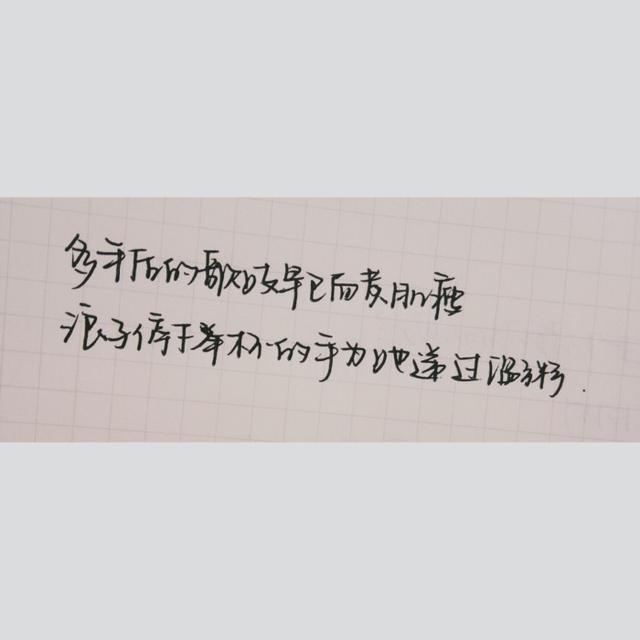 多年后的歌妓早已面黄肌瘦
浪子停下举杯的手为她递过温粥.